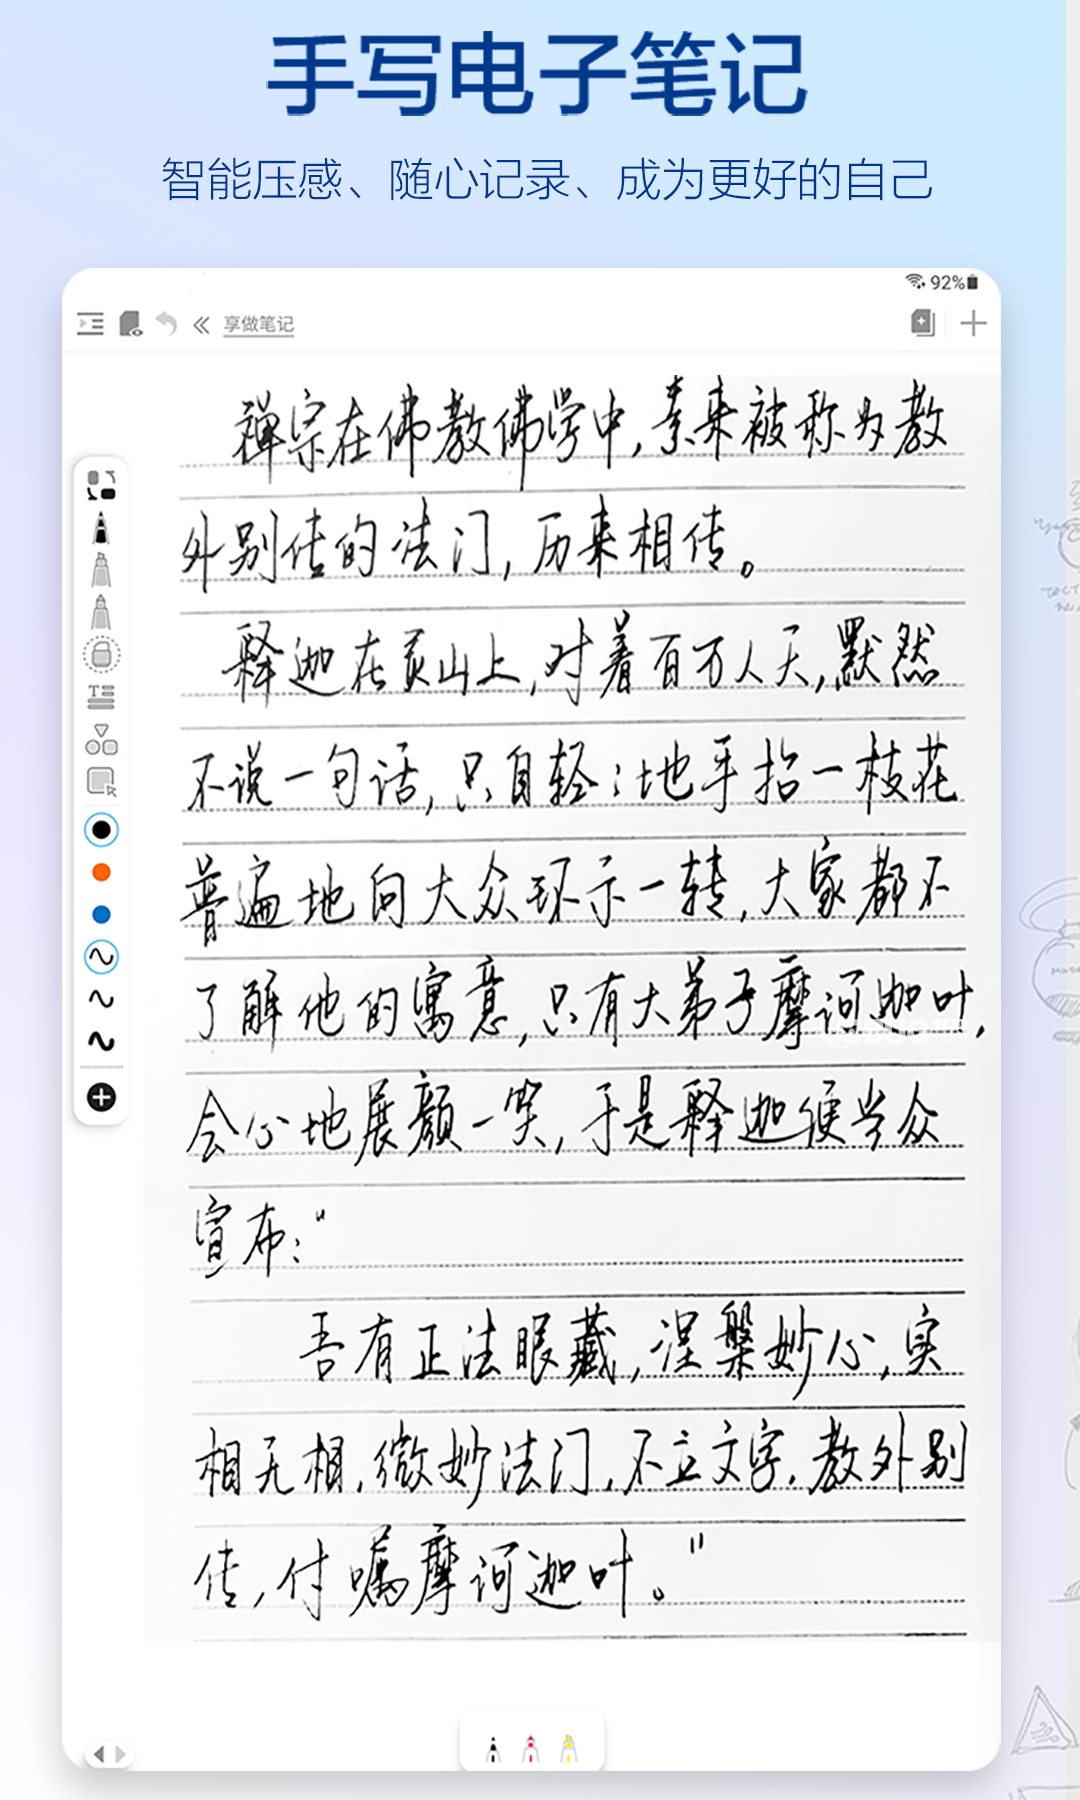 手写电子笔记
智能压感、随心记录、成为更好的自己
92%
享做笔记
禅宗在佛教佛学中,素来被称为教
外别传的法门,历来相传。
释迦在灵山上,对着百万人天,默然
不说一句话,只自轻:地手抬一枝花
普遍地向大众环示一转,大家都不
了解他的寓意,只有大弟子摩诃迦叶,
会心地展颜一笑,于是释迦便当众
宣布:"
吾有正法眼藏,涅槃妙心,实
相无相,微妙法门,不立文字,教外别
传,付嘱摩诃迦叶。"